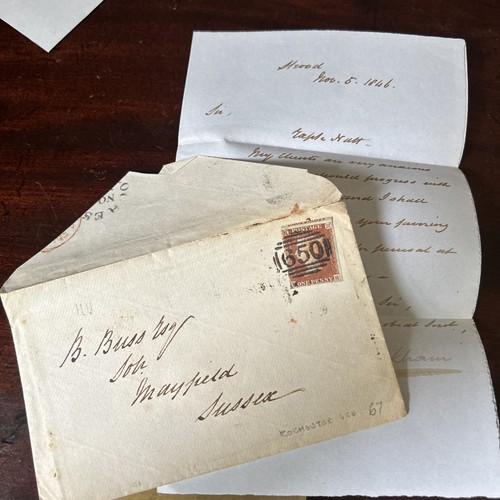 Strood
Nov. 5. 1846.
Sir,
My clients are very anxious
should progress with
and I shall
your favoring
perusal at
Sir,
POSTAGE
650
ONE PENNY
B. Buss Esq
Solr
Mayfield
Sussex
ROCHESTER 650 B7